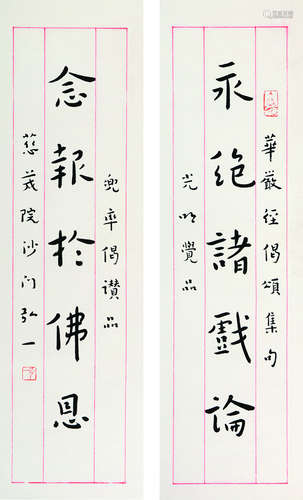 華嚴經偈頌集句
永絕諸戲論
光明覺品
兜率偈讚品
念報於佛恩
慈茂院沙門弘一